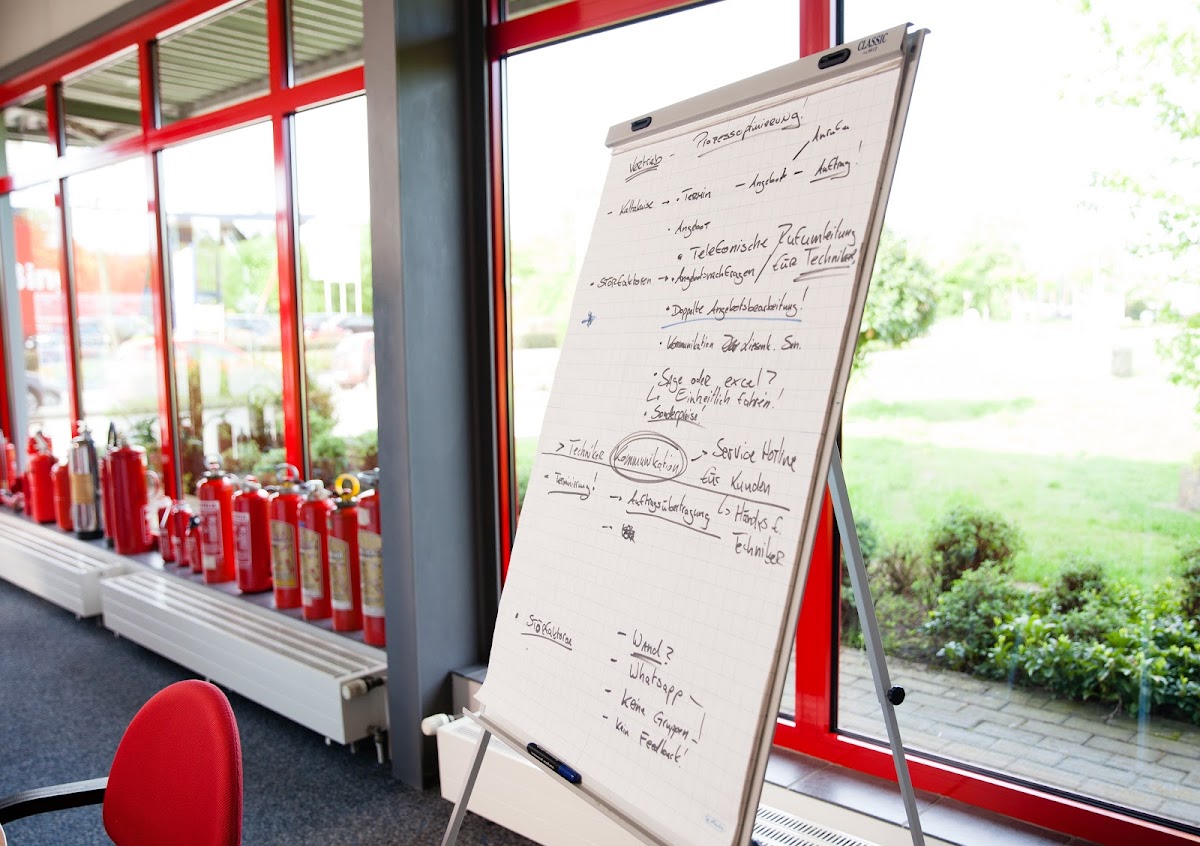 CLASSIC
Vertrieb - Prozessoptimierung!
- Kaltakuise → • Termin - Angebot - Auftrag!
Anrufen
• Angebot
• Telefonische Rufumleitung
für Techniker
• Störfaktoren → • Angebotsnachfragen /
• Doppelte Angebotsbearbeitung!
• Kommunikation
• Sage oder excel?
↳ Einheitlich fahren!
• Sonderpreise!
> Techniker Kommunikation → Service Hotline
für Kunden
• Terminierung! → Auftragsübertragung ↳ Handys f.
Techniker
• Störfaktoren - Wand?
- Whatsapp
- keine Gruppen
- kein Feedback!